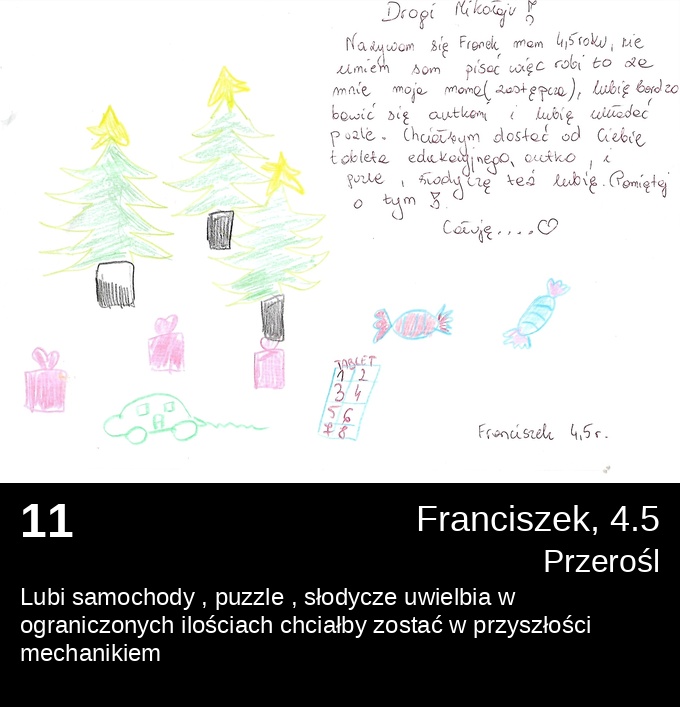 Drogi Mikołaju !
Nazywam się Franek mam 4,5 roku, nie
umiem sam pisać więc robi to za
mnie moja mama (zastępcza), lubię bardzo
bawić się autkami i lubię układać
puzle. Chciałbym dostać od Ciebie
tableta edukacyjnego, autko, i
puzle, słodycze też lubię. (Pamiętaj
o tym !
Całuję....♡
TABLET
1 2
3 4
5 6
7 8
Franciszek 4,5 r.
11
Franciszek, 4.5
Przerośl
Lubi samochody , puzzle , słodycze uwielbia w
ograniczonych ilościach chciałby zostać w przyszłości
mechanikiem